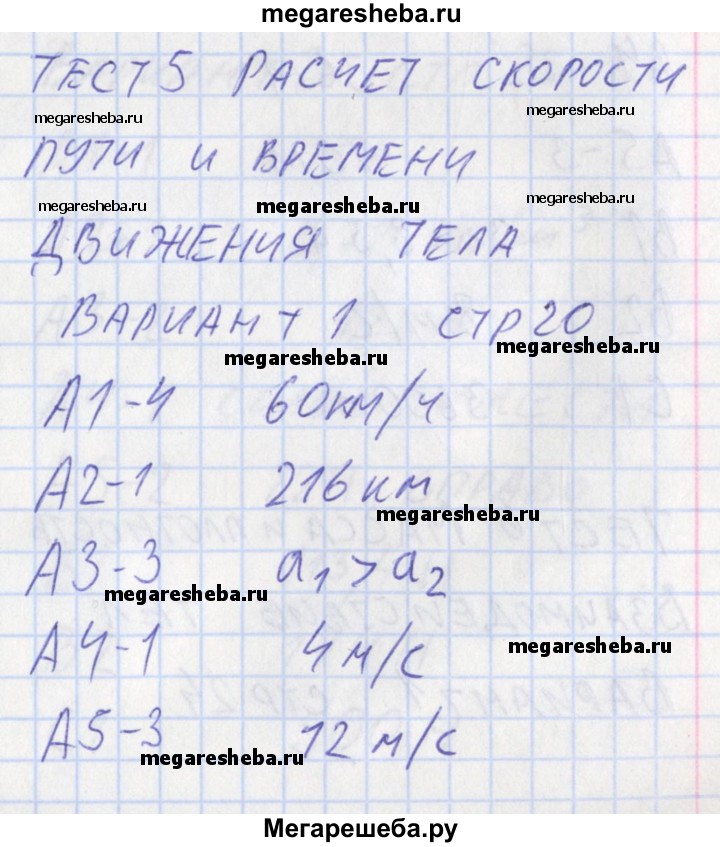 megaresheba.ru
ТЕСТ 5 РАСЧЕТ СКОРОСТИ
megaresheba.ru
megaresheba.ru
ПУТИ И ВРЕМЕНИ
megaresheba.ru
megaresheba.ru
megaresheba.ru
ДВИЖЕНИЯ ТЕЛА
ВАРИАНТ 1 СТР 20
megaresheba.ru
megaresheba.ru
А1-4 60км/ч
А2-1 216 км
megaresheba.ru
А3-3 a1 > a2
megaresheba.ru
А4-1 4 м/с
megaresheba.ru
А5-3 12 м/с
megaresheba.ru
Мегарешеба.ру